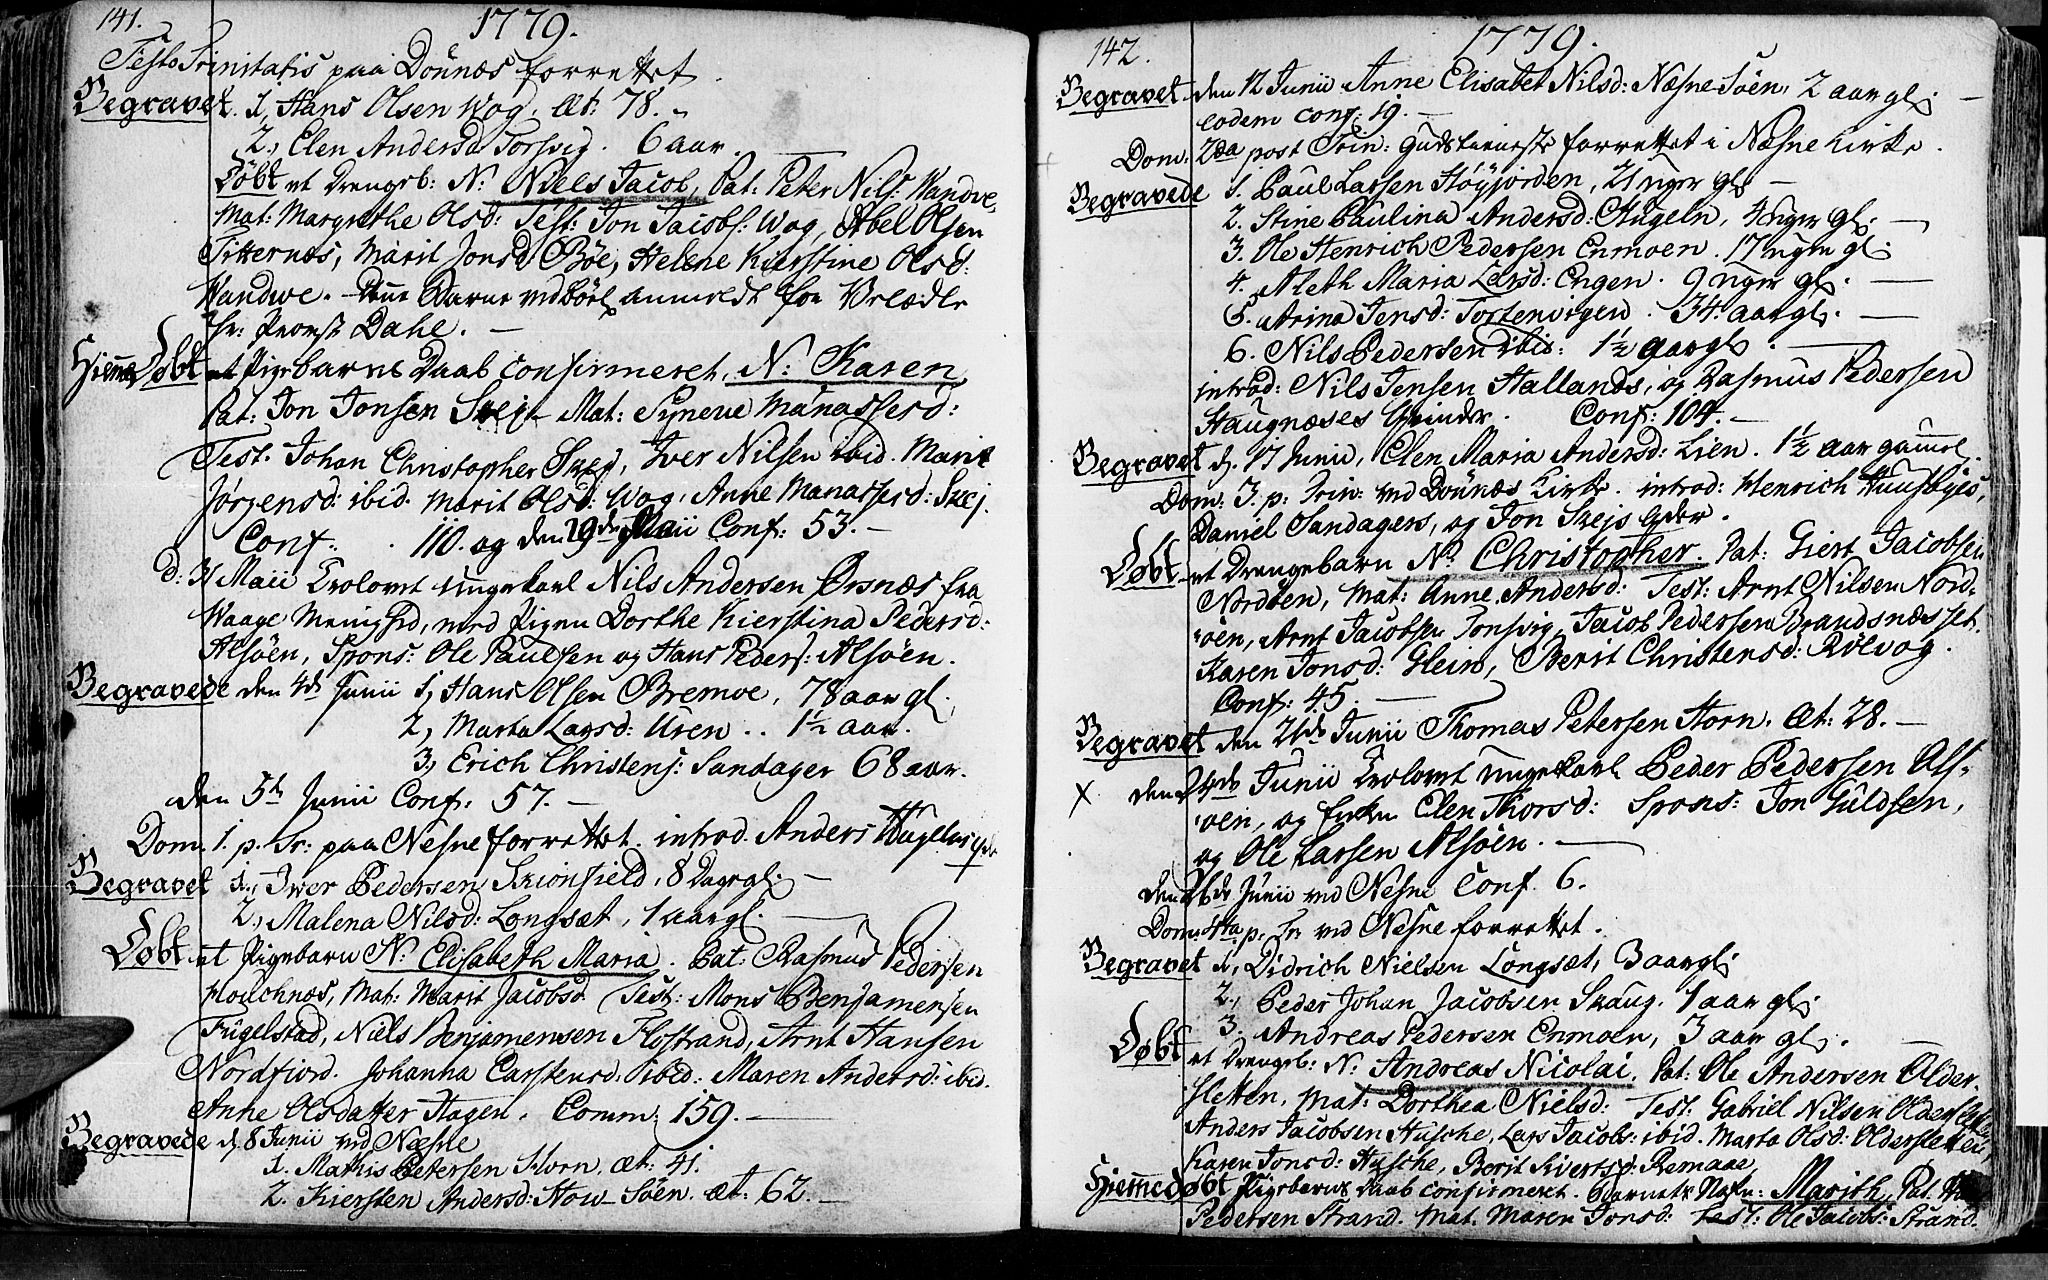 141.
1779.
Festo Trinitatis paa Dönnæs forrettet.
Begravet. 1, Hans Olsen Wog, æt: 78.
2, Elen Andersd Torsvig. 6 aar.
Døbt et Drengeb: N: Niels Jacob, Pat: Peter Nils: Wandve,
Mat: Margrethe Olsd: Test: Jon Jacobs: Wog, Abel Olsen
Titternæs, Marit Jonsd Böe, Helene Kierstine Olsd:
Wandwe. Barne
Hr: Provst Dahl.
Hjemedøbt et Pigebarns Daab confirmeret, N: Karen,
Pat: Jon Jonsen Skej Mat: Syneve Manasserd:
Test. Johan Christopher Skej, Iver Nilsen ibid. Marit
Jørgensd: ibid. Marit Olsd: Wog, Anne Manasserd: Skej.
Conf: 110. og den 29de Maii Conf: 53.
d: 31 Maii Trolovet Ungekarl Nils Andersen Ørsnæs fra
Waage Menighed, med Pigen Dorthe Kierstina Pedersd:
Alsöen, Spons: Ole Paulsen og Hans Peders: Alsöen.
Begravede den 4de Junii 1, Hans Olsen Bremve, 78 aar gl.
2, Marta Larsd: Uren .. 1½ aar.
3, Erich Christens: Sandager 68 aar.
den 5te Junii Conf: 57.
Dom. 1. p. Tr: paa Nesne forrettet. introd. Anders Hugelns
Begravet 1., Iwer Pedersen Skionfield, 8 Dage gl.
2, Malena Nilsd: Longsæt, 1 aar gl.
Døbt et Pigebarn N: Elisabeth Maria. Pat: Rasmus Pedersen
Houchnæs, Mat: Marit Jacobsd Test: Mons Benjamensen
Fugelstad, Niels Benjamensen Flostrand, Arnt Hansen
Nordfiord. Johanna Carstensd. ibid: Maren Andersd: ibid.
Anne Olsdatter Hagen. Comm: 159.
Begravede d: 8 Junii ved Næsne
1. Mathis Petersen Horn, æt: 41.
2. Kiersten Andersd: How Söen. æt: 62.
142.
1779.
Begravet den 12 Junii Anne Elisabet Nilsd: Næsne Söen, 2 aar gl:
eodem conf: 19.
Dom: 2da post Trin: Gudstieneste forrettet i Næsne Kirke.
Begravede 1. Paul Larsen Høyjorden, 21 uger gl:
2. Stine Paulina Andersd: Hugeln, 4 uger gl.
3. Ole Henrich Pedersen Enmoen. 17 ugen gl:
4. Aleth Maria Larsd: Engen. 9 uger gl.
5. Arina Jensd: Tortenvigen. 34 aar gl.
6. Nils Pedersen ibid: 1½ aar gl.
introd: Nils Jensen Hallands, og Rasmus Pedersen
Haugnæses Qvinder. Conf: 104.
Begravet d. 17 Junii, Elen Maria Andersd: Lien. 1½ aar gammel.
Dom. 3. p. Trin: ved Dönnæs Kirke. introd: Henrich Huusbyes,
Daniel Sandagers, og Jon Skejs Qder.
Døbt et Drengebarn N: Christopher. Pat: Giert Jacobsen
Nordöen, Mat: Anne Andersd: Test: Arnt Nilsen Nord-
öen, Arnt Jacobsen Tonsvig, Jacob Pedersen Brandsnæsset.
Karen Jonsd: Glein, Berit Christensd: Rölvog.
Conf: 45.
Begravet den 21de Junii Thomas Petersen Horn. æt: 28.
X den 24de Junii Trolovet ungekarl Peder Pedersen Als-
öen, og Enken Elen Thorsd: Spons: Jon Guldsen,
og Ole Larsen Alsöen.
den 26de Junii ved Nesne Conf. 6.
Dom: 4ta p. Tr: ved Nesne forrettet.
Begravet 1, Didrich Nielsen Longsæt, 3 aar gl:
2., Peder Johan Jacobsen Skaug. 1 aar gl:
3. Andreas Pedersen Enmoen, 3 aar gl.
Døbt et Drengeb: N: Andreas Nicolai, Pat: Ole Andersen Older-
sletten, Mat: Dorthea Nielsd: Test: Gabriel Nilsen Oldersletten,
Anders Jacobsen Husche, Lars Jacobs: ibid. Marta Olsd: Oldersletten,
Karen Jonsd: Husche, Berit Sivertsd: Remaae,
Hjemedøbt Pigebarns Daab confirmeret. Barnets Nafn: Marith, Pat:
Pedersen Strand. Mat. Maren Jonsd: Test: Ole Jacobs: Strand.